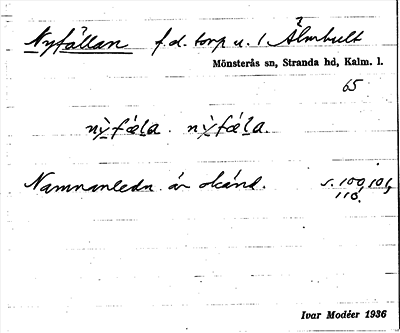 Nyfällan f.d. torp u. 1 Älmhult
Mönsterås sn, Stranda hd, Kalm. l.
65
nỳfæla. nỳfæla.
Namnanledn. är okänd. s. 100, 101,
110.
Ivar Modéer 1936